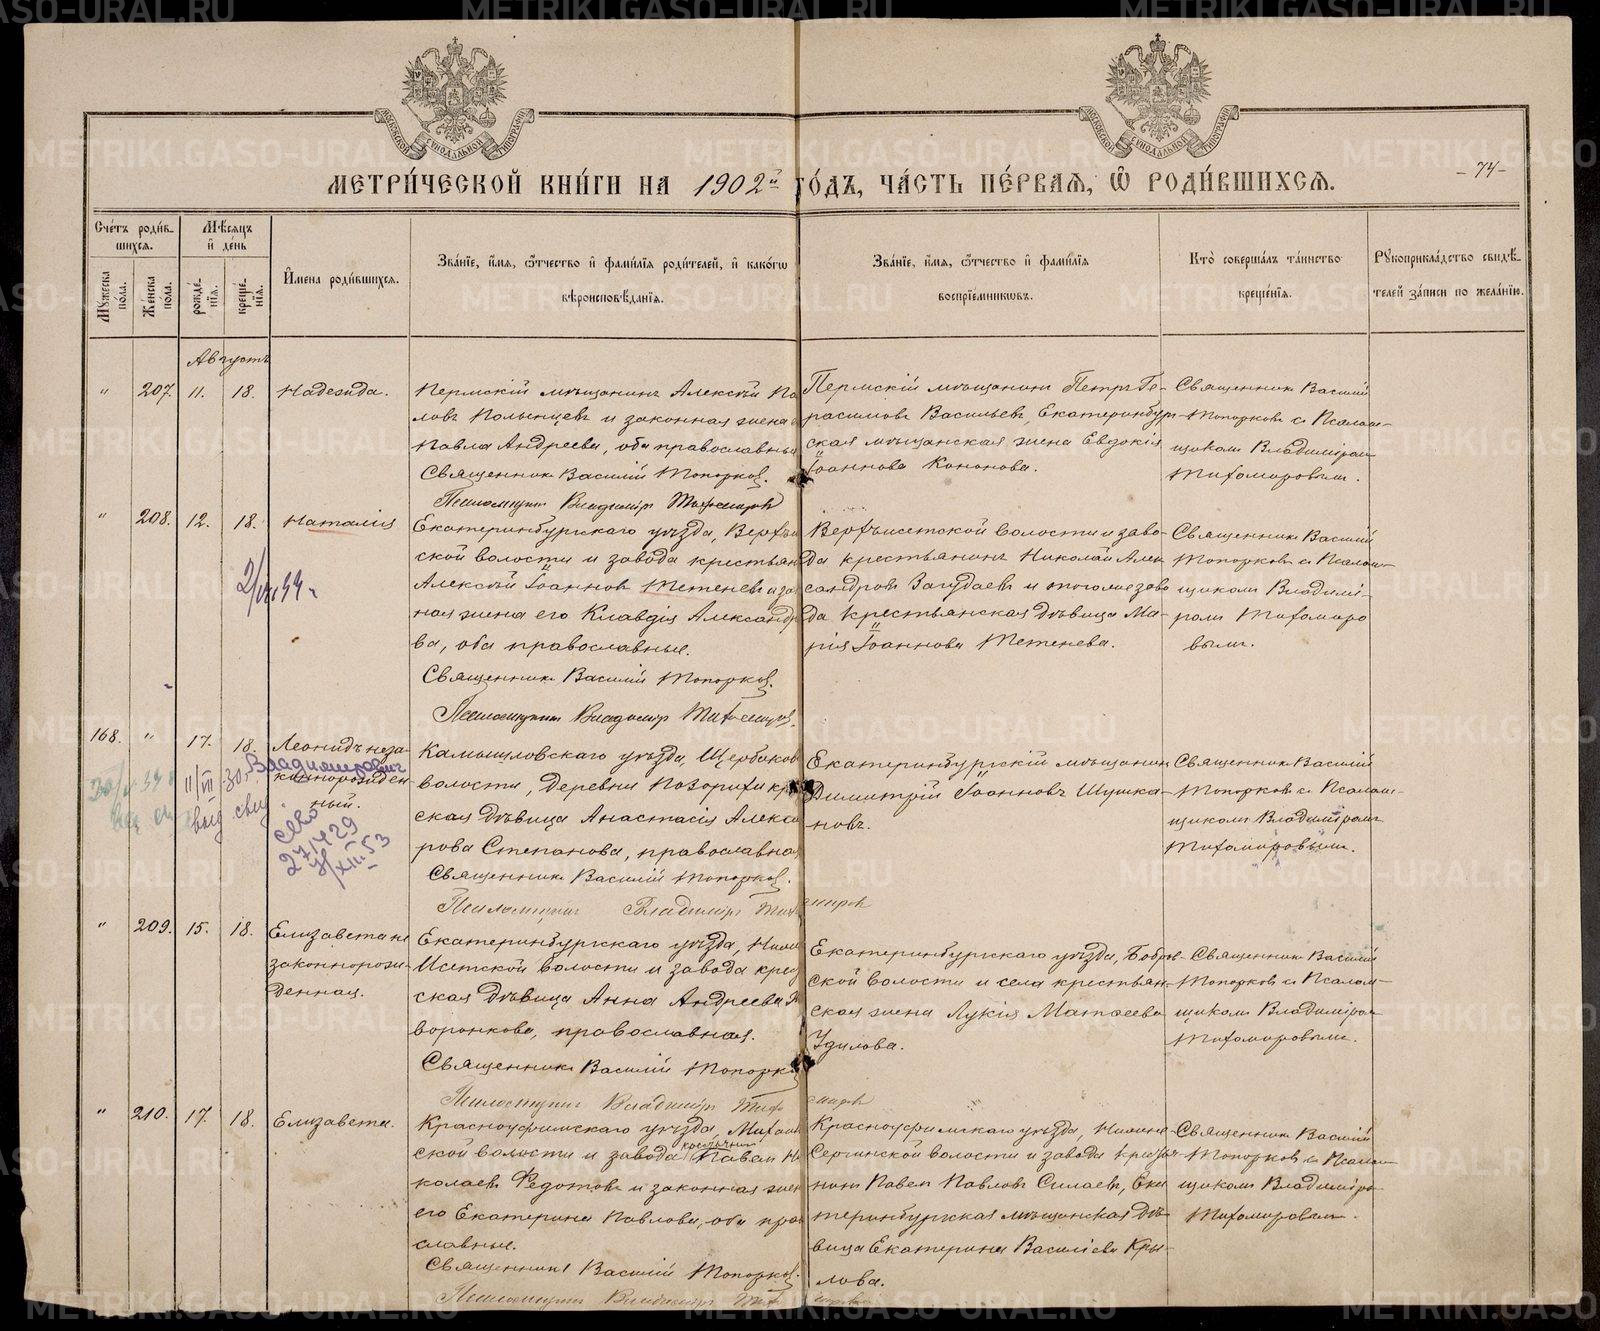 МЕТРИ́ЧЕСКОЙ КНИ́ГИ НА 1902й ГО́ДЪ, ЧА́СТЬ ПЕ́РВАѦ, Ѽ РОДИ́ВШИХСѦ.
-74-
Сче́тъ роди́в-
шихсѧ.
Мужеска пола.
Же́нска пола.
Мѣ́сѧцъ
и де́нь
рожде́-
нїѧ.
креще́-
нїѧ.
И҆мена роди́вшихсѧ.
Зва́нїе, и҆мѧ, ѻ҆́тчество и҆ фами́лїѧ роди́телей, и҆ како́гѡ
вѣроисповѣ́данїѧ.
Зва́нїе, и҆мѧ, ѻ҆́тчество и҆ фами́лїѧ
воспрїе́мникѡвъ.
Кто̀ соверша́лъ та́инство
креще́нїѧ.
Рꙋкоприкла́дство свидѣ́-
телей за́писи по жела́нїю.
Августъ
" 207. 11. 18. Надежда.
Пермскій мѣщанинъ Алексѣй Па
ловъ Полынцевъ и законная жена
Павла Андреева, оба православные
Священникъ Василій Топорковъ.
Псаломщикъ Владиміръ Тихомировъ
Пермскій мѣщанинъ Петръ Ге-
расимовъ Васильевъ, Екатеринбург-
ская мѣщанская жена Евдокія
Іоаннова Кононова.
Священникъ Василій
Топорковъ съ Псалом-
щикомъ Владиміромъ
Тихомировымъ.
" 208. 12. 18. Наталія
Екатеринбургскаго уѣзда, Верхъи
ской волости и завода крестьян
Алексѣй Іоанновъ Тетеневъ и за
ная жена его Клавдія Александр
ва, оба православные.
Священникъ Василій Топорковъ.
Псаломщикъ Владиміръ Тихомировъ.
Верхъисетской волости и заво-
да крестьянинъ Николай Алек
сандровъ Загудаевъ и того же заво
да крестьянская дѣвица Ма-
рія Іоаннова Тетенева.
Священникъ Василій
Топорковъ съ Псалом-
щикомъ Владимі-
ромъ Тихомиро
вымъ.
168. " 17. 18. Леонидъ неза-
Владимирович
конорожден
ный.
II/VII 30.
выд свид
27/429
XII.53
Камышловскаго уѣзда, Щербаков
волости, деревни Позарихи кр
ская дѣвица Анастасія Алекса
рова Степанова, православная
Священникъ Василій Топорковъ.
Псаломщикъ Владиміръ Тихомировъ
Екатеринбургскій мѣщанинъ
Димитрій Іоанновъ Шушка-
новъ.
Священникъ Василій
Топорковъ съ Псалом-
щикомъ Владиміромъ
Тихомировымъ.
" 209. 15. 18. Елизавета не
законнорож-
денная.
Екатеринбургскаго уѣзда, Нижне
Исетской волости и завода крес
ская дѣвица Анна Андреева
воронкова, православная.
Священникъ Василій Топорков
Псаломщикъ Владиміръ Тихомировъ
Екатеринбургскаго уѣзда, Бобров-
ской волости и села крестьян-
ская жена Лукія Матѳеева
Удилова.
Священникъ Василій
Топорковъ съ Псалом-
щикомъ Владиміромъ
Тихомировымъ.
" 210. 17. 18. Елизавета.
Красноуфимскаго уѣзда, Михайл
ской волости и завода крестьянинъ Павелъ Ни
колаевъ Федотовъ и законная жен
его Екатерина Павлова, оба прав
славные.
Священникъ Василій Топорковъ.
Псаломщикъ Владиміръ Тихомировъ
Красноуфимскаго уѣзда, Нижне-
Сергинской волости и завода крестья
нинъ Павелъ Павловъ Силаевъ, Ека
теринбургская мѣщанская дѣ-
вица Екатерина Василіева Кры-
лова.
Священникъ Василій
Топорковъ съ Псалом-
щикомъ Владиміро
Тихомировым.
METRIKI.GASO-URAL.RU